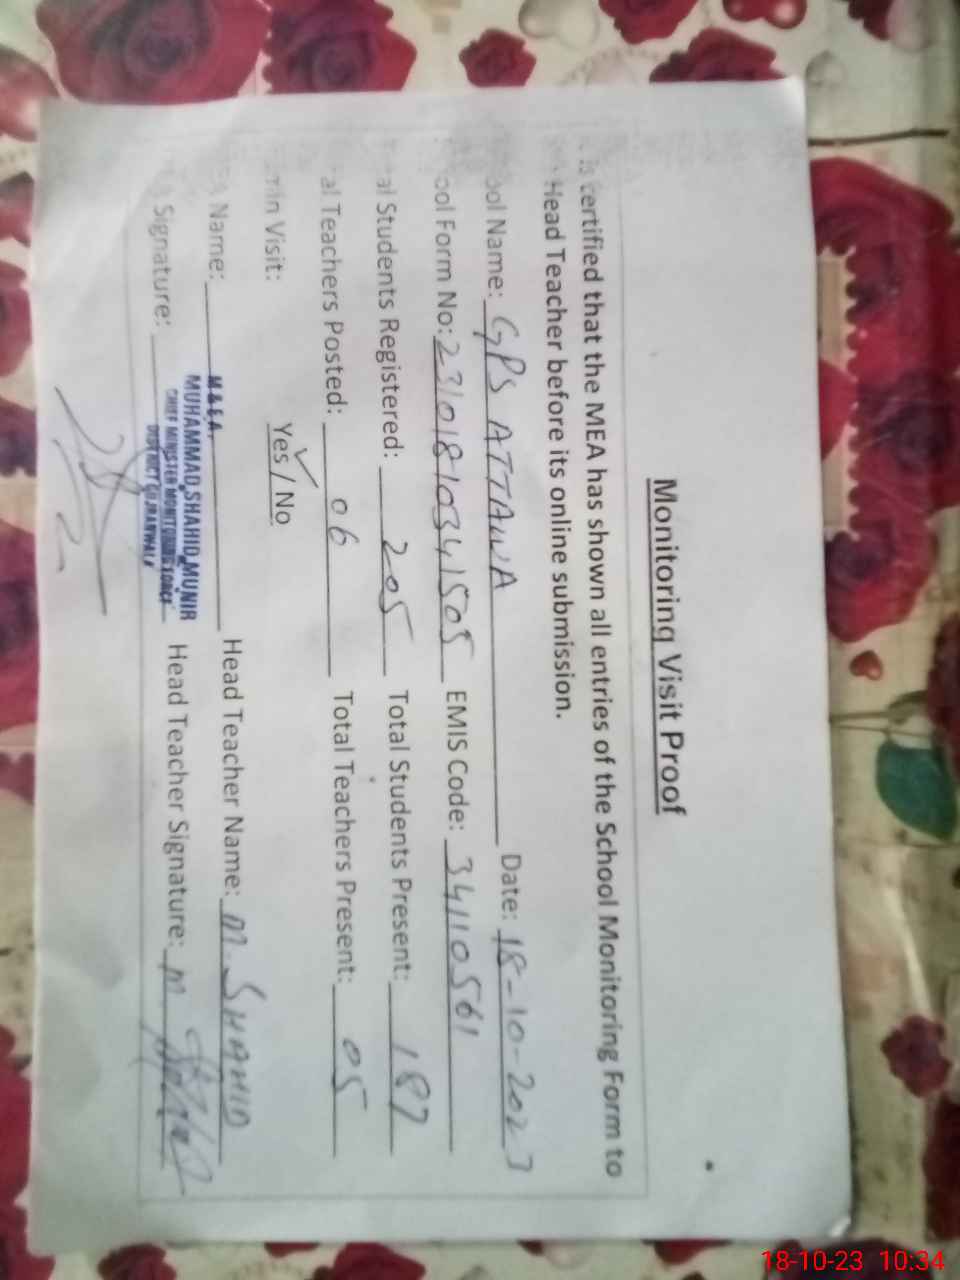 Monitoring Visit Proof
is certified that the MEA has shown all entries of the School Monitoring Form to
Head Teacher before its online submission.
ool Name: GPS ATTAWA Date: 18-10-2023
ool Form No: 23101810341505 EMIS Code: 34110561
al Students Registered: 205 Total Students Present: 187
al Teachers Posted: 06 Total Teachers Present: 05
Visit: Yes / No
Name: M&EA. Head Teacher Name: M. SHAHID
MUHAMMAD SHAHID MUNIR
CHIEF MINISTER MONITORING FORCE
DISTRICT GUJRANWALA
Signature: Head Teacher Signature: M
18-10-23 10:34